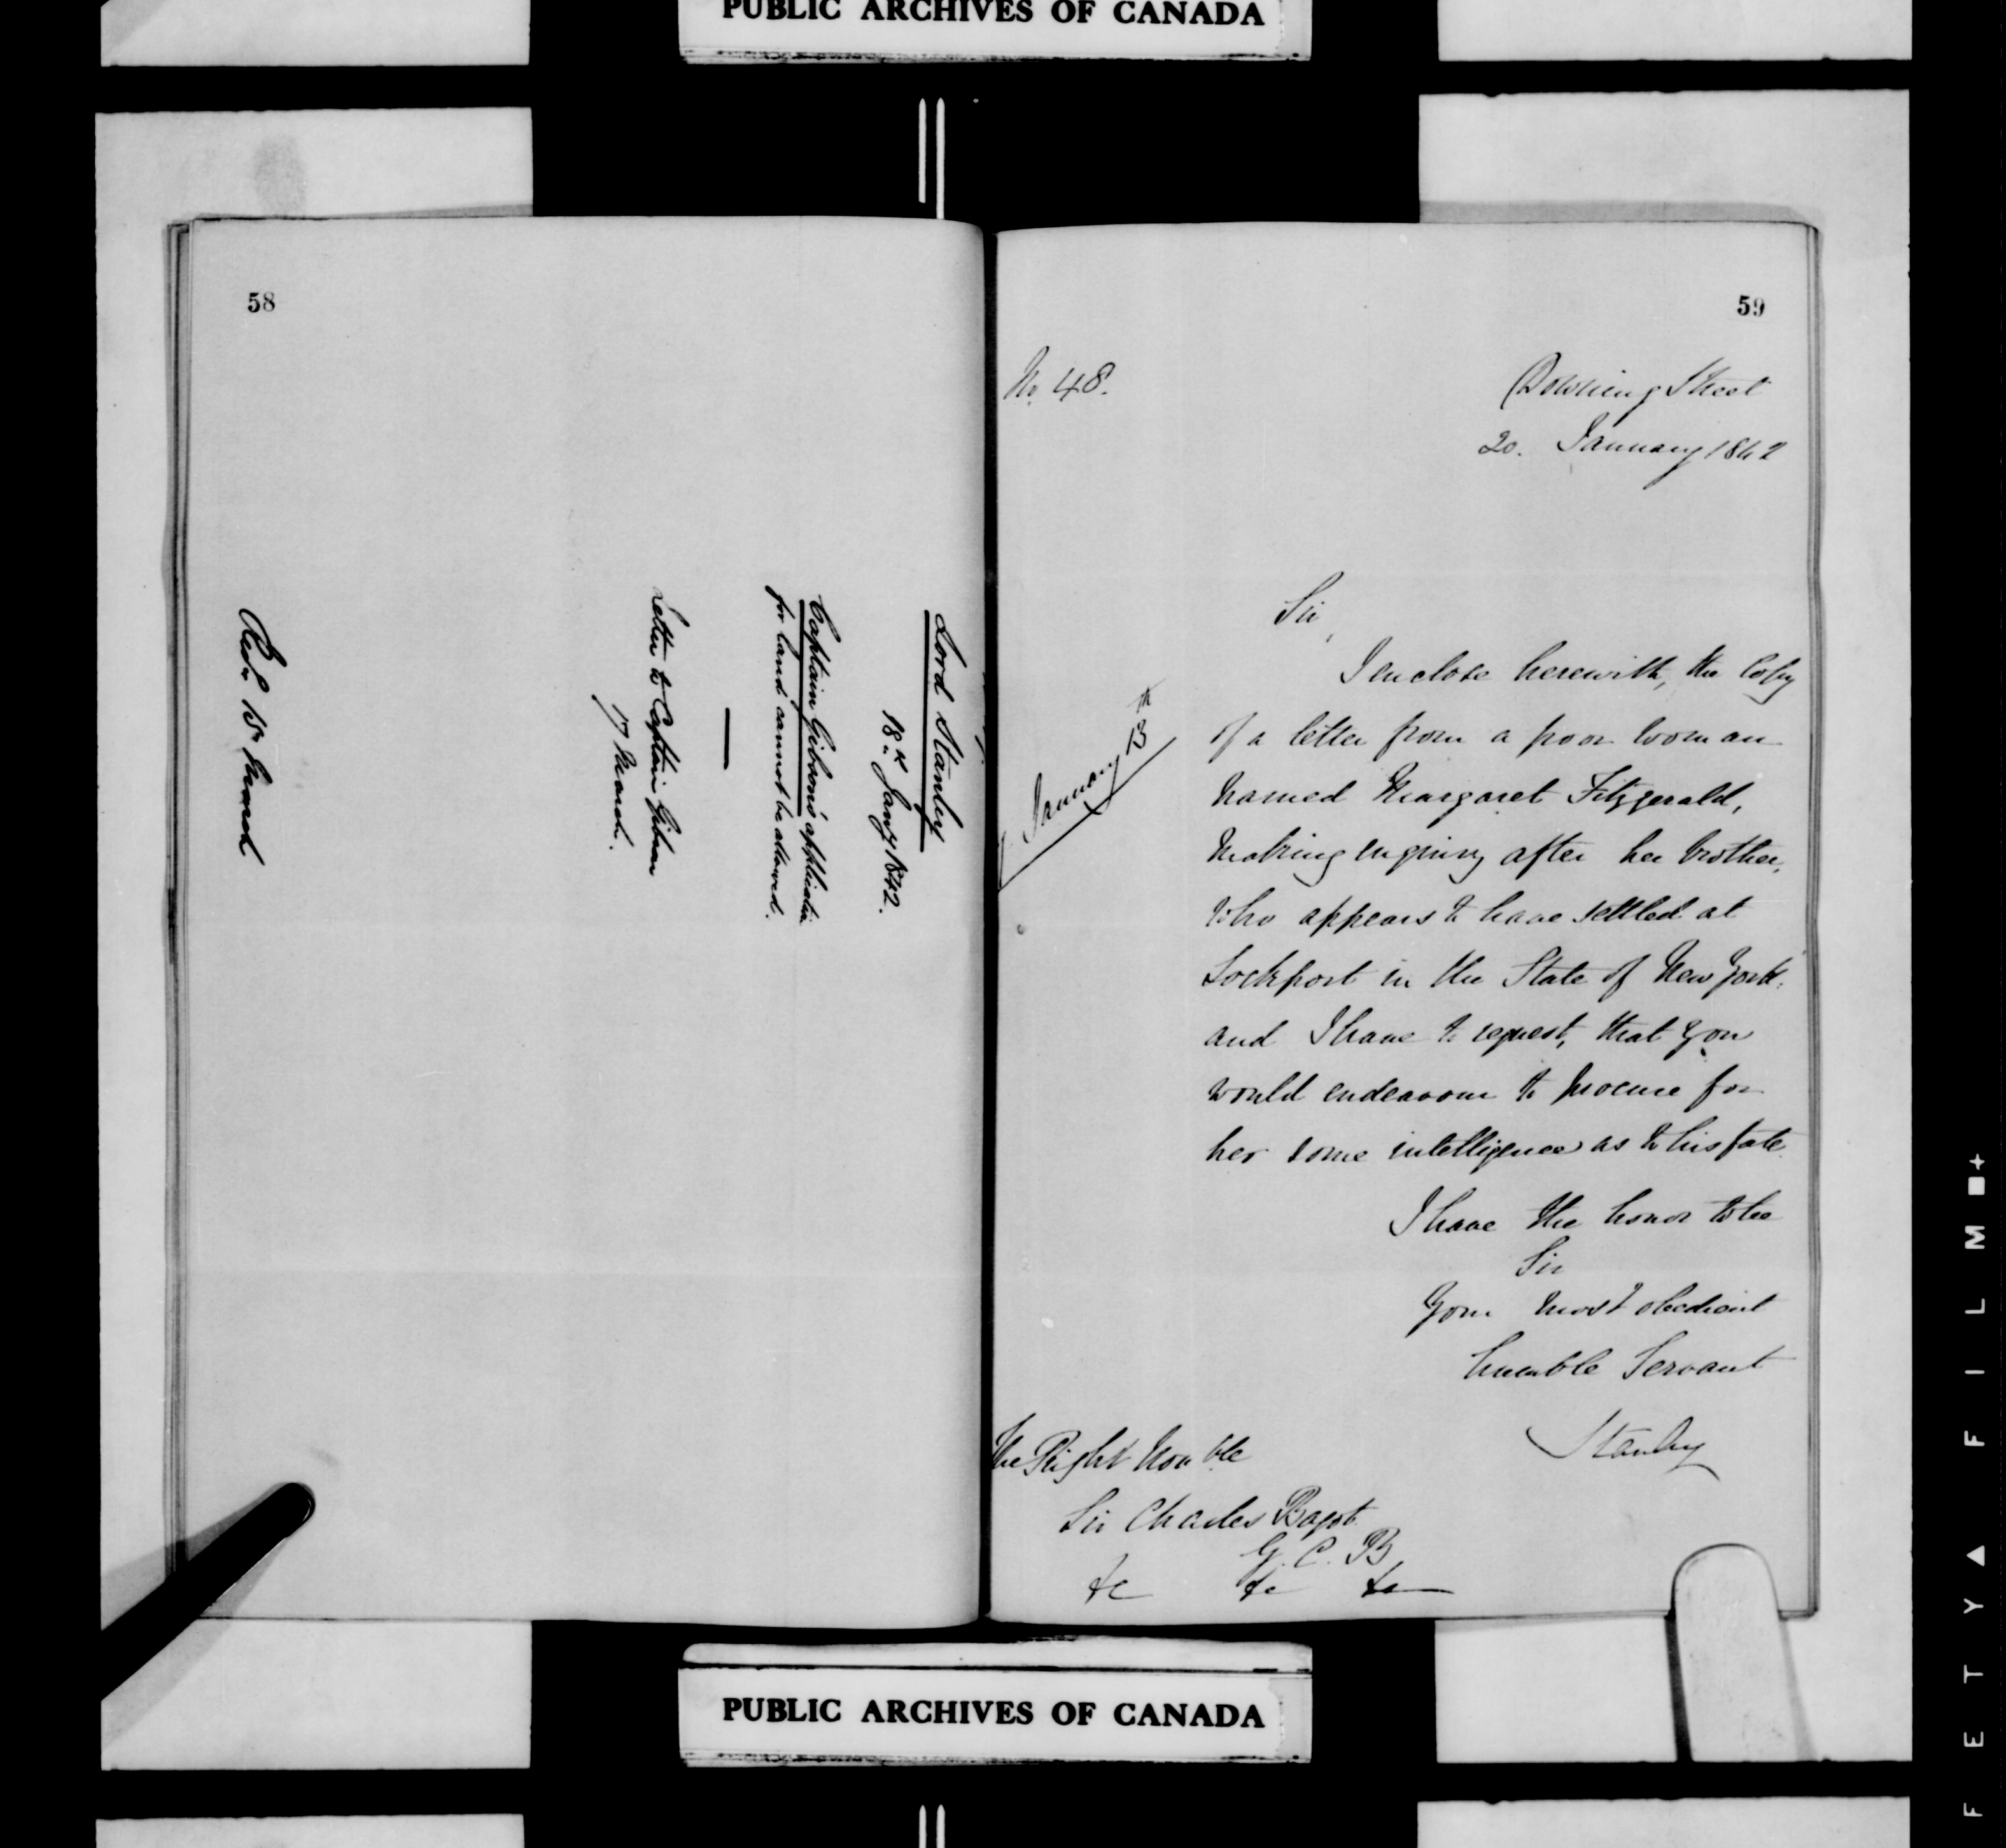 PUBLIC ARCHIVES OF CANADA
58
Lord Stanley
18th Jany 1842.
Captain Gibson's application
for land cannot be allowed.
Letter to Captain Gibson
17 March.
Red. 15 March
59
No. 48.
Downing Street
20. January 1842
Sir,
I enclose herewith, the Copy
January 13th
of a letter from a poor woman
named Margaret Fitzgerald,
making enquiry after her brother,
who appears to have settled at
Lockport in the State of New York:
and I have to request, that you
would endeavour to procure for
her some intelligence as to his fate.
I have the honor to be
Sir
Your most obedient
humble Servant
Stanley
The Right Honble
Sir Charles Bagot
G. C. B
&c &c &c
PUBLIC ARCHIVES OF CANADA
F E T Y ▲ F I L M ■+